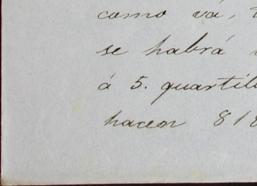 como vá,
se habrá
á 5. quartil
hacen 818